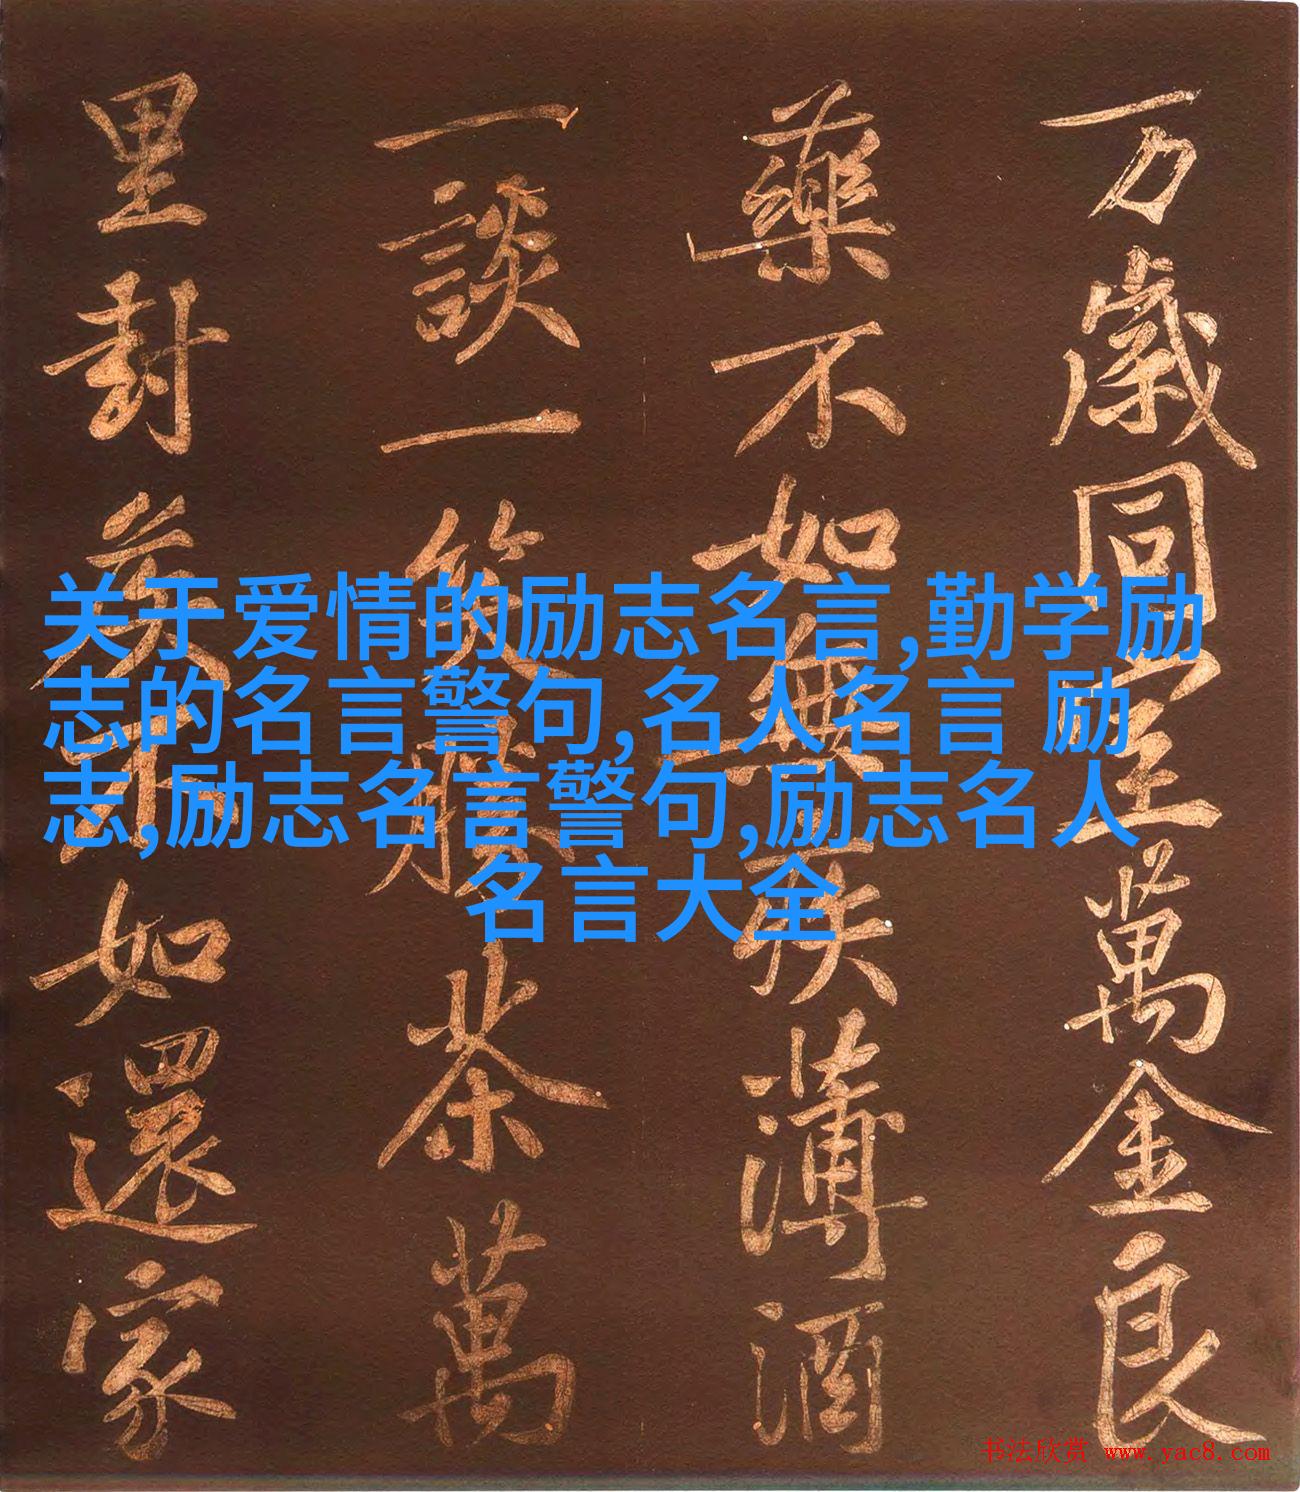 万歲同室萬金良
藥不如無疾薄酒
一談一笑勝茶萬
里封矦不如還家
关于爱情的励志名言,勤学励
志的名言警句,名人名言 励
志,励志名言警句,励志名人
名言大全
书法欣赏 www.yac8.com